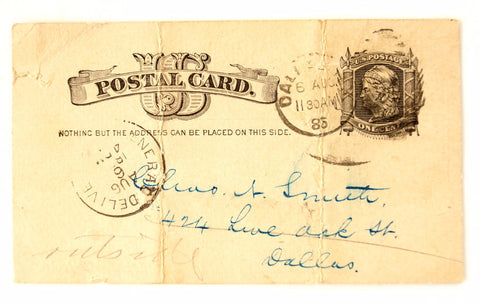 POSTAL CARD.
U.S. POSTAGE
ONE CENT
DALLAS
6 AUG
11 30 AM
85
NOTHING BUT THE ADDRESS CAN BE PLACED ON THIS SIDE.
GENERAL DELIVE
AUG
N. Smith,
424 Live Oak St.
Dallas.
outside